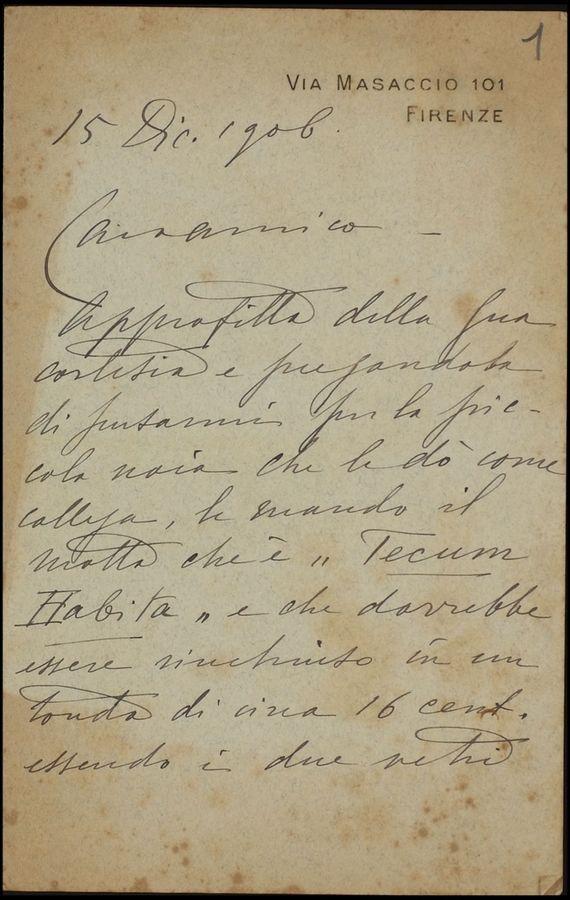 1
VIA MASACCIO 101
FIRENZE
15 Dic. 1906.
Caro amico —
Approfitto della sua
cortesia e pregandola
di scusarmi per la pic-
cola noia che le dò come
collega, le mando il
motto che è „ Tecum
Habita „ e che dovrebbe
essere rinchiuso in un
tondo di circa 16 cent.
essendo i due vetri